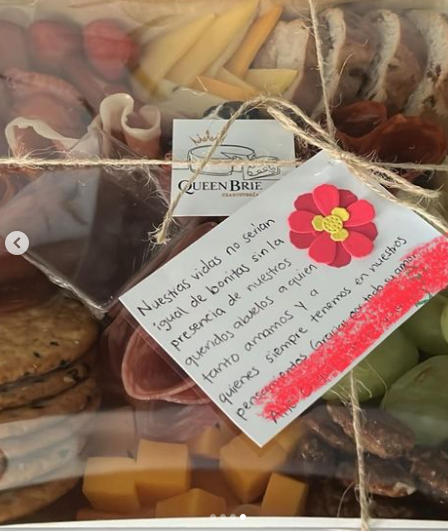 QUEEN BRIE
CHARCUTERÍA
Nuestras vidas no serían
igual de bonitas sin la
presencia de nuestros
queridos abuelos a quien
tanto amamos y a
quienes siempre tenemos en nuestros